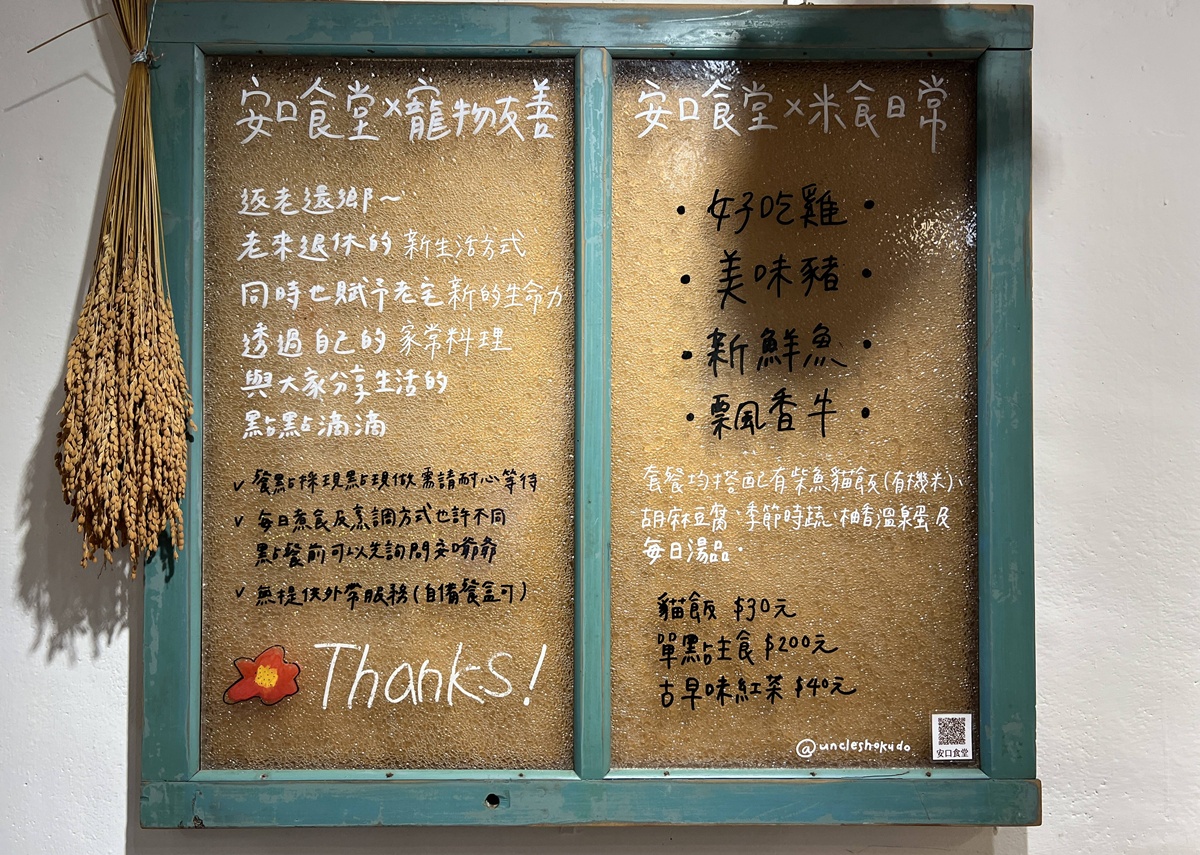 安口食堂×寵物友善
返老還鄉~
老來退休的 新生活方式
同時也賦予老宅新的生命力
透過自己的 家常料理
與大家分享生活的
點點滴滴
✓ 餐點採現點現做需請耐心等待
✓ 每日煮食及烹調方式也許不同
點餐前可以先詢問安口爺爺
✓ 無提供外帶服務(自備餐盒可)
Thanks!
安口食堂×米食日常
• 好吃雞 •
• 美味豬 •
• 新鮮魚 •
• 飄香牛 •
套餐均搭配有柴魚貓飯(有機米)、
胡麻豆腐、季節時蔬、柚香溫泉蛋及
每日湯品。
貓飯 $30元
單點主食 $200元
古早味紅茶 $40元
@uncleshokudo
安口食堂